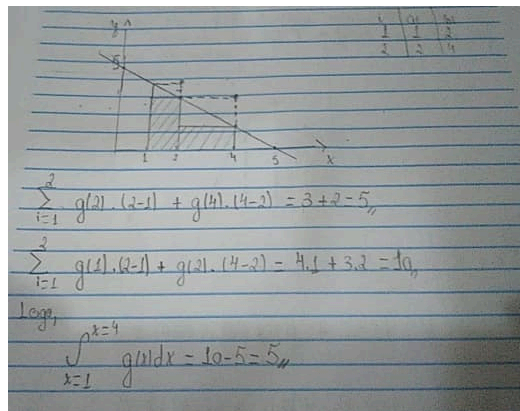 y
5
1 2 4 5 x
1 1 2
2 2 4
2
∑ g(2).(2-1) + g(4).(4-2) = 3+2=5,,
i=1
2
∑ g(1).(2-1) + g(2).(4-2) = 4.1 + 3.2 = 10,,
i=1
Logo,
∫ x=4
g(x)dx = 10-5=5,,
x=1